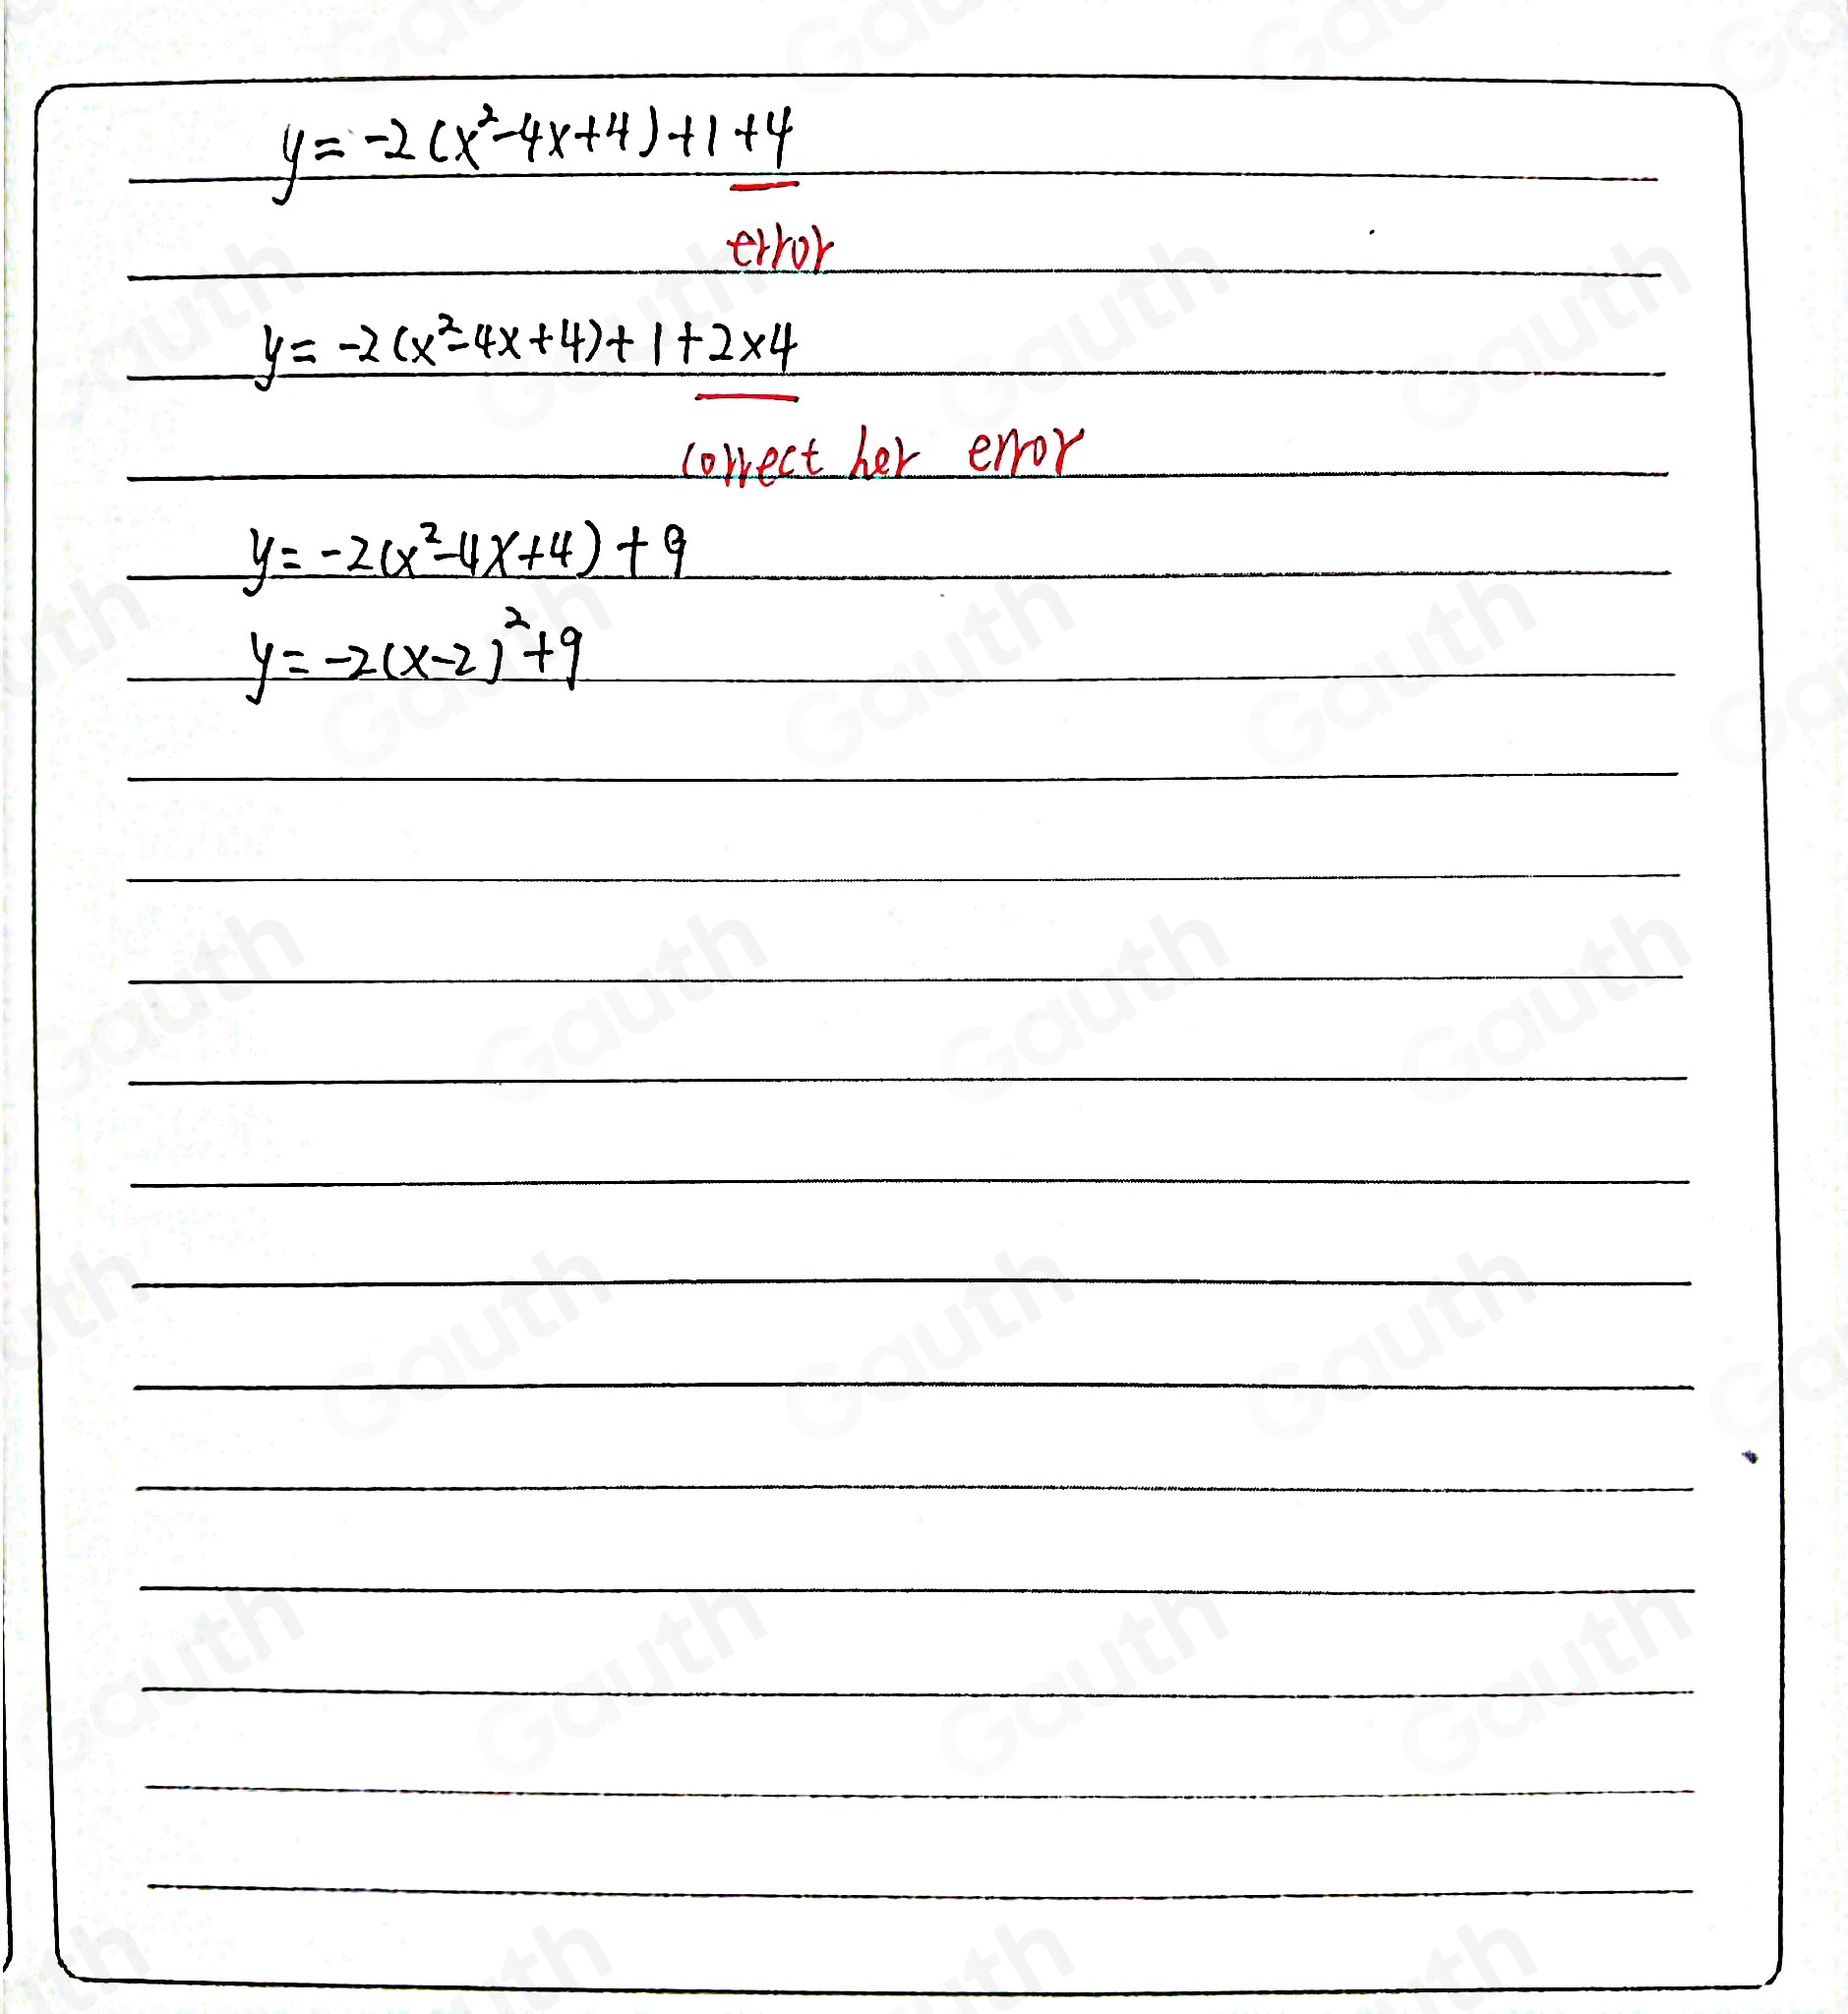 y = -2(x²-4x+4)+1+4
error
y = -2(x²-4x+4)+1+2×4
correct her error
y = -2(x²-4x+4)+9
y = -2(x-2)²+9